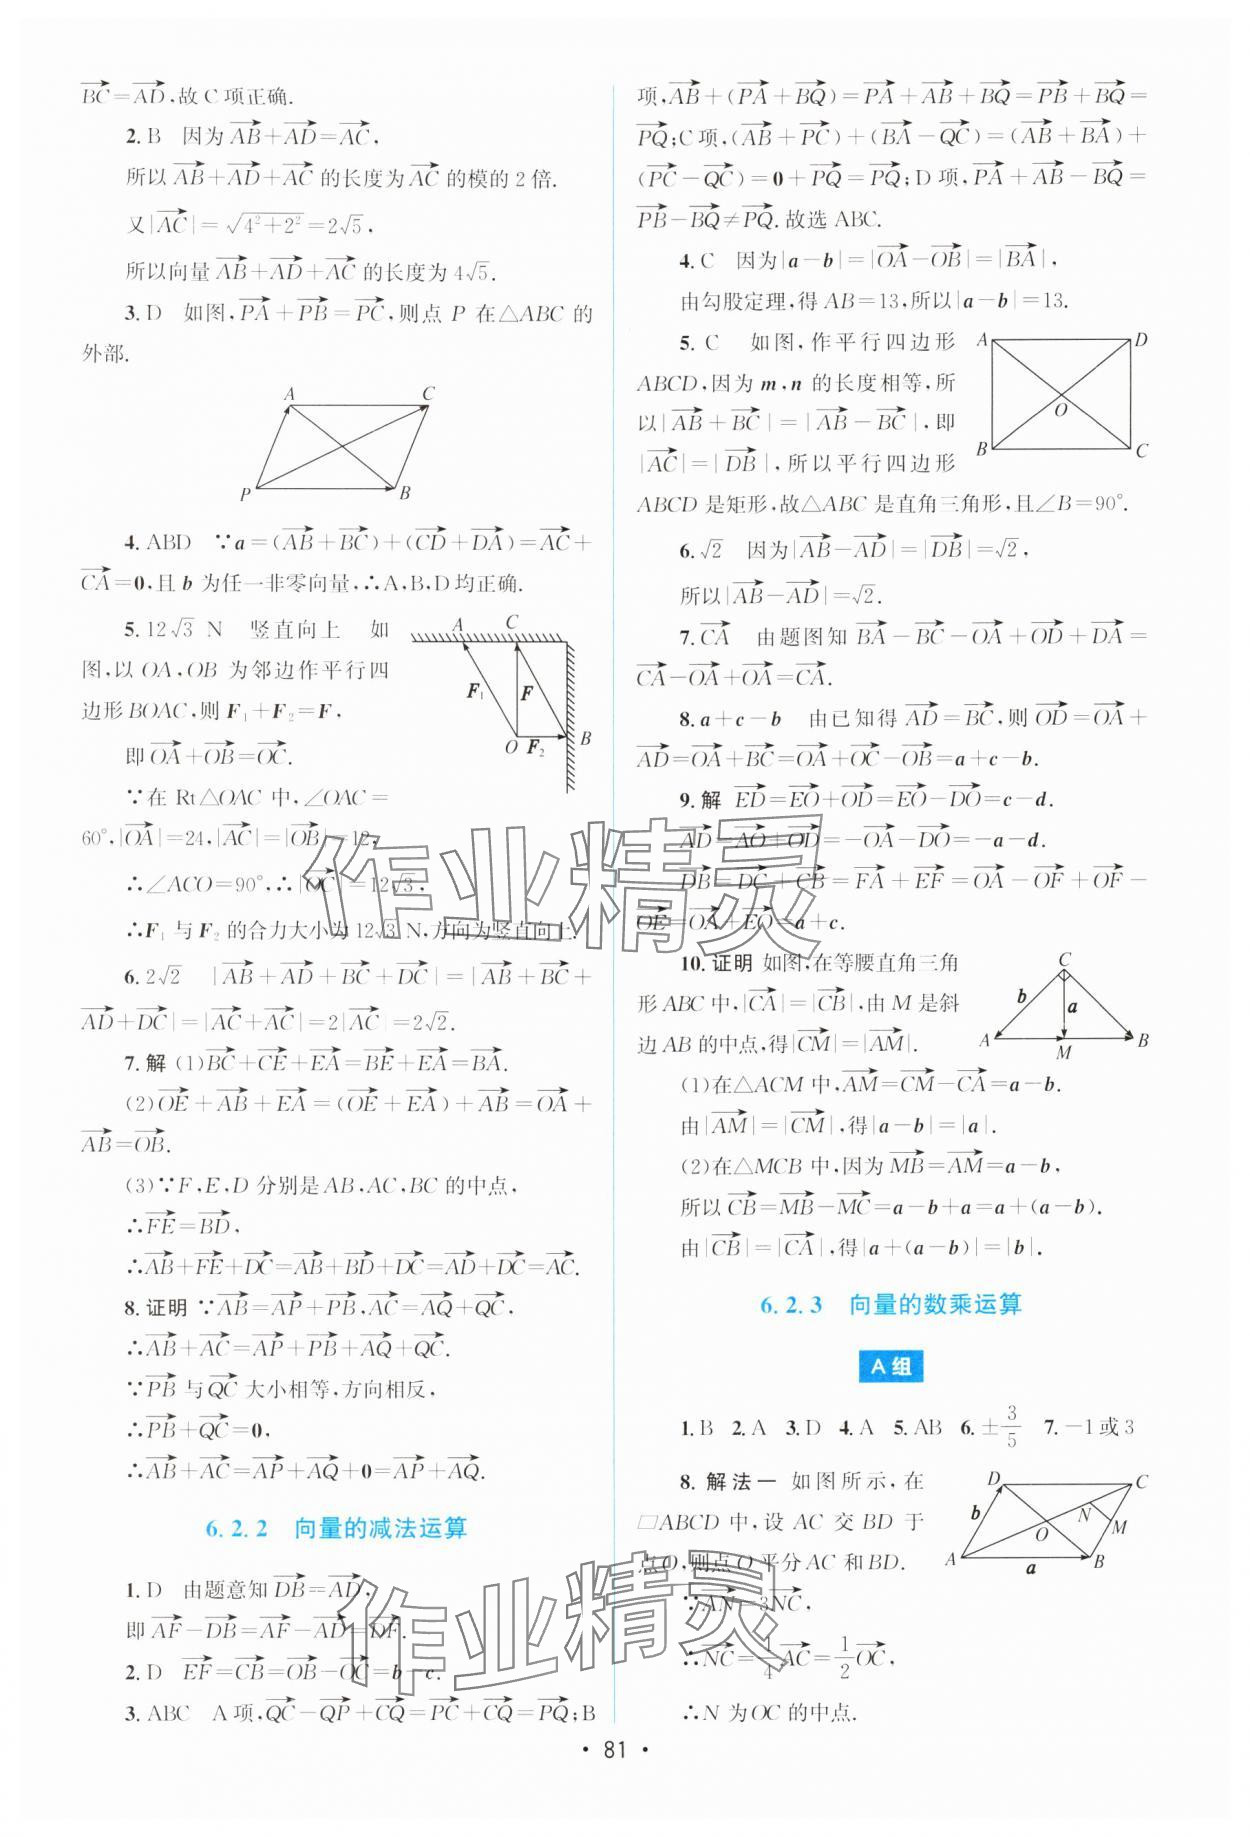 $\overrightarrow{BC}=\overrightarrow{AD}$,故C项正确.
2. B 因为$\overrightarrow{AB}+\overrightarrow{AD}=\overrightarrow{AC}$,
所以$\overrightarrow{AB}+\overrightarrow{AD}+\overrightarrow{AC}$的长度为$\overrightarrow{AC}$的模的2倍.
又$|\overrightarrow{AC}|=\sqrt{4^2+2^2}=2\sqrt{5}$,
所以向量$\overrightarrow{AB}+\overrightarrow{AD}+\overrightarrow{AC}$的长度为$4\sqrt{5}$.
3. D 如图,$\overrightarrow{PA}+\overrightarrow{PB}=\overrightarrow{PC}$,则点P在△ABC的
外部.
A C
P B
4. ABD ∵$a=(\overrightarrow{AB}+\overrightarrow{BC})+(\overrightarrow{CD}+\overrightarrow{DA})=\overrightarrow{AC}+$
$\overrightarrow{CA}=\mathbf{0}$,且b为任一非零向量,∴A,B,D均正确.
5. $12\sqrt{3}$ N 竖直向上 如
图,以OA,OB为邻边作平行四
边形BOAC,则$F_1+F_2=F$,
即$\overrightarrow{OA}+\overrightarrow{OB}=\overrightarrow{OC}$.
∵在Rt△OAC中,∠OAC=
60°,$|\overrightarrow{OA}|=24$,$|\overrightarrow{AC}|=|\overrightarrow{OB}|=12$,
A C
$F_1$ F
O $F_2$ B
∴∠ACO=90°,∴$|\overrightarrow{OC}|=12\sqrt{3}$,
∴$F_1$与$F_2$的合力大小为$12\sqrt{3}$ N,方向为竖直向上.
6. $2\sqrt{2}$ $|\overrightarrow{AB}+\overrightarrow{AD}+\overrightarrow{BC}+\overrightarrow{DC}|=|\overrightarrow{AB}+\overrightarrow{BC}+$
$\overrightarrow{AD}+\overrightarrow{DC}|=|\overrightarrow{AC}+\overrightarrow{AC}|=2|\overrightarrow{AC}|=2\sqrt{2}$.
7. 解 (1)$\overrightarrow{BC}+\overrightarrow{CE}+\overrightarrow{EA}=\overrightarrow{BE}+\overrightarrow{EA}=\overrightarrow{BA}$.
(2)$\overrightarrow{OE}+\overrightarrow{AB}+\overrightarrow{EA}=(\overrightarrow{OE}+\overrightarrow{EA})+\overrightarrow{AB}=\overrightarrow{OA}+$
$\overrightarrow{AB}=\overrightarrow{OB}$.
(3)∵F,E,D分别是AB,AC,BC的中点,
∴$\overrightarrow{FE}=\overrightarrow{BD}$,
∴$\overrightarrow{AB}+\overrightarrow{FE}+\overrightarrow{DC}=\overrightarrow{AB}+\overrightarrow{BD}+\overrightarrow{DC}=\overrightarrow{AD}+\overrightarrow{DC}=\overrightarrow{AC}$.
8. 证明 ∵$\overrightarrow{AB}=\overrightarrow{AP}+\overrightarrow{PB}$,$\overrightarrow{AC}=\overrightarrow{AQ}+\overrightarrow{QC}$,
∴$\overrightarrow{AB}+\overrightarrow{AC}=\overrightarrow{AP}+\overrightarrow{PB}+\overrightarrow{AQ}+\overrightarrow{QC}$.
∵$\overrightarrow{PB}$与$\overrightarrow{QC}$大小相等,方向相反,
∴$\overrightarrow{PB}+\overrightarrow{QC}=\mathbf{0}$,
∴$\overrightarrow{AB}+\overrightarrow{AC}=\overrightarrow{AP}+\overrightarrow{AQ}+\mathbf{0}=\overrightarrow{AP}+\overrightarrow{AQ}$.
6.2.2 向量的减法运算
1. D 由题意知$\overrightarrow{DB}=\overrightarrow{AD}$,
即$\overrightarrow{AF}-\overrightarrow{DB}=\overrightarrow{AF}-\overrightarrow{AD}=\overrightarrow{DF}$.
2. D $\overrightarrow{EF}=\overrightarrow{CB}=\overrightarrow{OB}-\overrightarrow{OC}=b-c$.
3. ABC A项,$\overrightarrow{QC}-\overrightarrow{QP}+\overrightarrow{CQ}=\overrightarrow{PC}+\overrightarrow{CQ}=\overrightarrow{PQ}$;B
项,$\overrightarrow{AB}+(\overrightarrow{PA}+\overrightarrow{BQ})=\overrightarrow{PA}+\overrightarrow{AB}+\overrightarrow{BQ}=\overrightarrow{PB}+\overrightarrow{BQ}=$
$\overrightarrow{PQ}$;C项,$(\overrightarrow{AB}+\overrightarrow{PC})+(\overrightarrow{BA}-\overrightarrow{QC})=(\overrightarrow{AB}+\overrightarrow{BA})+$
$(\overrightarrow{PC}-\overrightarrow{QC})=\mathbf{0}+\overrightarrow{PQ}=\overrightarrow{PQ}$;D项,$\overrightarrow{PA}+\overrightarrow{AB}-\overrightarrow{BQ}=$
$\overrightarrow{PB}-\overrightarrow{BQ}\neq\overrightarrow{PQ}$.故选ABC.
4. C 因为$|a-b|=|\overrightarrow{OA}-\overrightarrow{OB}|=|\overrightarrow{BA}|$,
由勾股定理,得AB=13,所以$|a-b|=13$.
5. C 如图,作平行四边形
ABCD,因为m,n的长度相等,所
以$|\overrightarrow{AB}+\overrightarrow{BC}|=|\overrightarrow{AB}-\overrightarrow{BC}|$,即
$|\overrightarrow{AC}|=|\overrightarrow{DB}|$,所以平行四边形
A D
O
B C
ABCD是矩形,故△ABC是直角三角形,且∠B=90°.
6. $\sqrt{2}$ 因为$|\overrightarrow{AB}-\overrightarrow{AD}|=|\overrightarrow{DB}|=\sqrt{2}$,
所以$|\overrightarrow{AB}-\overrightarrow{AD}|=\sqrt{2}$.
7. $\overrightarrow{CA}$ 由题图知$\overrightarrow{BA}-\overrightarrow{BC}-\overrightarrow{OA}+\overrightarrow{OD}+\overrightarrow{DA}=$
$\overrightarrow{CA}-\overrightarrow{OA}+\overrightarrow{OA}=\overrightarrow{CA}$.
8. $a+c-b$ 由已知得$\overrightarrow{AD}=\overrightarrow{BC}$,则$\overrightarrow{OD}=\overrightarrow{OA}+$
$\overrightarrow{AD}=\overrightarrow{OA}+\overrightarrow{BC}=\overrightarrow{OA}+\overrightarrow{OC}-\overrightarrow{OB}=a+c-b$.
9. 解 $\overrightarrow{ED}=\overrightarrow{EO}+\overrightarrow{OD}=\overrightarrow{EO}-\overrightarrow{DO}=c-d$.
$\overrightarrow{AD}=\overrightarrow{AO}+\overrightarrow{OD}=-\overrightarrow{OA}-\overrightarrow{DO}=-a-d$.
$\overrightarrow{DB}=\overrightarrow{DC}+\overrightarrow{CB}=\overrightarrow{FA}+\overrightarrow{EF}=\overrightarrow{OA}-\overrightarrow{OF}+\overrightarrow{OF}-$
$\overrightarrow{OE}=\overrightarrow{OA}+\overrightarrow{EO}=a+c$.
10. 证明 如图,在等腰直角三角
形ABC中,$|\overrightarrow{CA}|=|\overrightarrow{CB}|$,由M是斜
边AB的中点,得$|\overrightarrow{CM}|=|\overrightarrow{AM}|$.
C
b a
A M B
(1)在△ACM中,$\overrightarrow{AM}=\overrightarrow{CM}-\overrightarrow{CA}=a-b$.
由$|\overrightarrow{AM}|=|\overrightarrow{CM}|$,得$|a-b|=|a|$.
(2)在△MCB中,因为$\overrightarrow{MB}=\overrightarrow{AM}=a-b$,
所以$\overrightarrow{CB}=\overrightarrow{MB}-\overrightarrow{MC}=a-b+a=a+(a-b)$.
由$|\overrightarrow{CB}|=|\overrightarrow{CA}|$,得$|a+(a-b)|=|b|$.
6.2.3 向量的数乘运算
A组
1. B 2. A 3. D 4. A 5. AB 6. $\pm\frac{3}{5}$ 7. -1或3
8. 解法一 如图所示,在
□ABCD中,设AC交BD于
点O,则点O平分AC和BD.
D C
b N
O M
A a B
∵$\overrightarrow{AN}=3\overrightarrow{NC}$,
∴$\overrightarrow{NC}=\frac{1}{4}\overrightarrow{AC}=\frac{1}{2}\overrightarrow{OC}$,
∴N为OC的中点.
作业精灵
作业精灵
· 81 ·